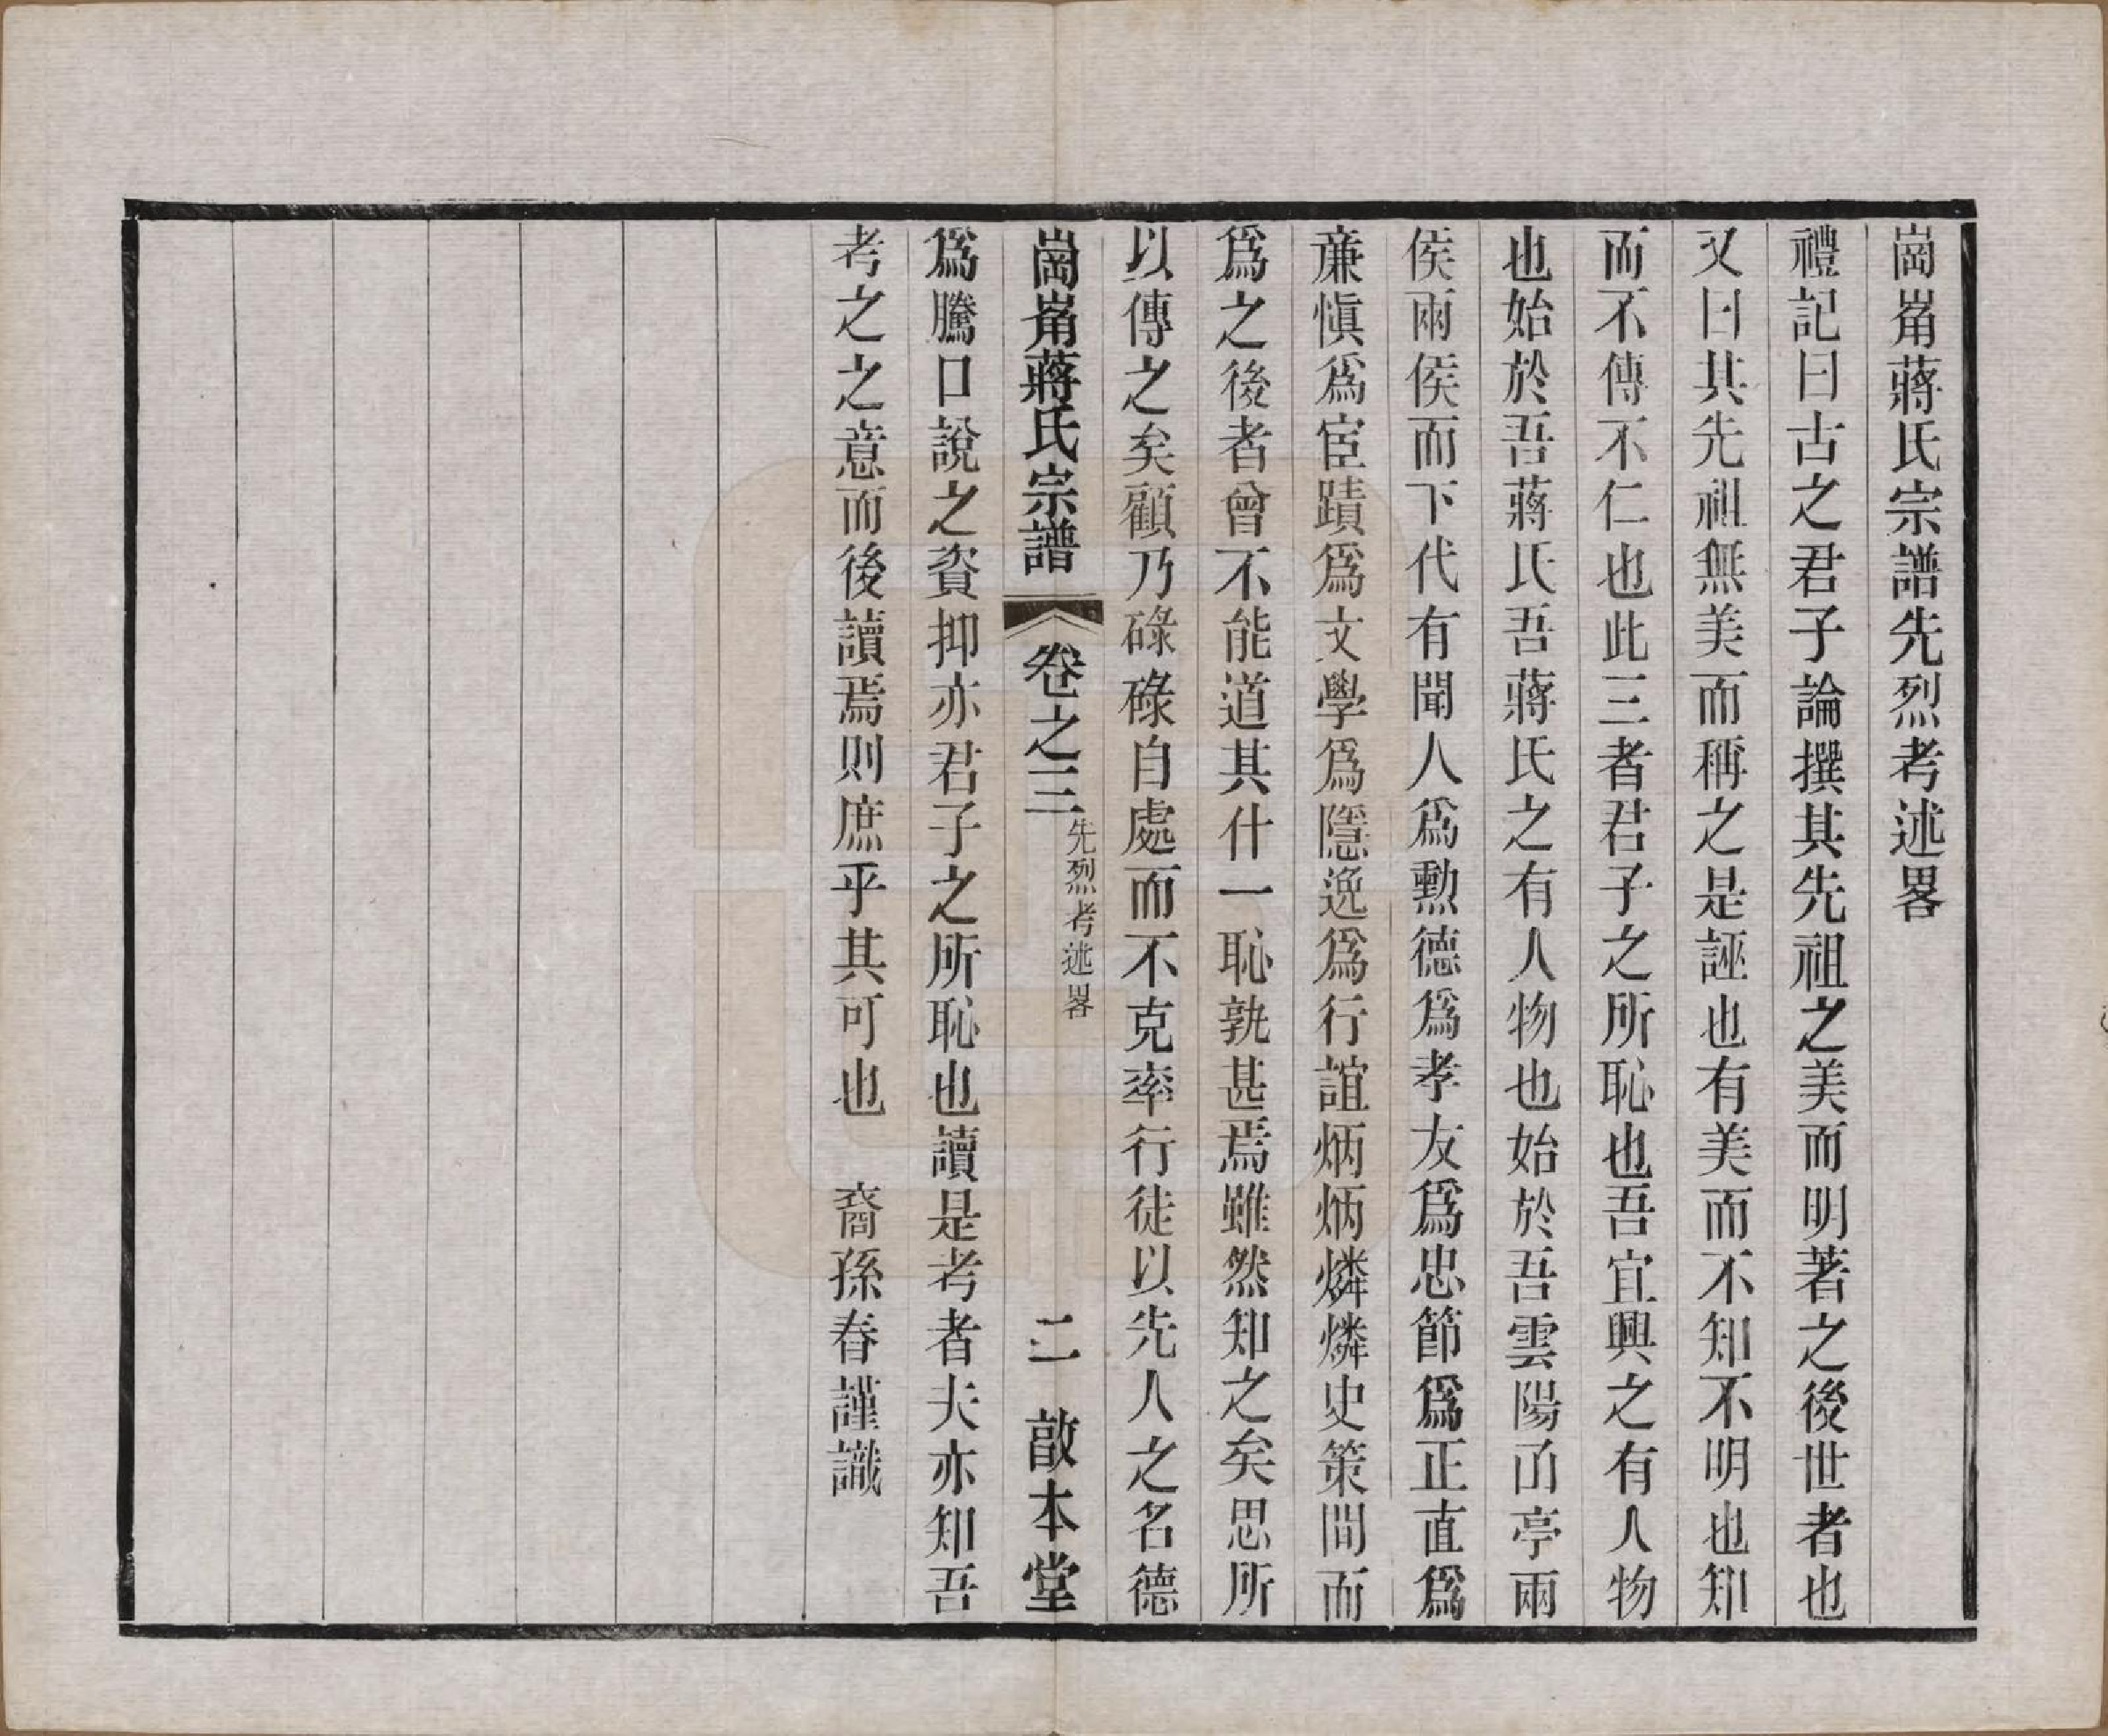 崗崩蔣氏宗譜先烈考述畧
禮記曰古之君子論撰其先祖之美而明著之後世者也
又曰其先祖無美而稱之是誣也有美而不知不明也知
而不傳不仁也此三者君子之所恥也吾宜興之有人物
也始於吾蔣氏吾蔣氏之有人物也始於吾雲陽䢺亭兩
侯兩侯而下代有聞人爲勲德爲孝友爲忠節爲正直爲
亷愼爲宦蹟爲文學爲隱逸爲行誼炳炳燐燐史策間而
爲之後者曾不能道其什一恥孰甚焉雖然知之矣思所
以傳之矣顧乃碌碌自處而不克率行徒以先人之名德
崗崩蔣氏宗譜 卷之三 先烈考述畧 二 敬本堂
爲騰口說之資抑亦君子之所恥也讀是考者夫亦知吾
考之之意而後讀焉則庶乎其可也 裔孫春謹識